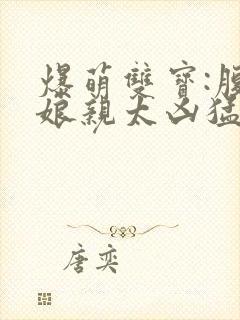 爆萌雙寶:
娘親太凶猛
唐奕